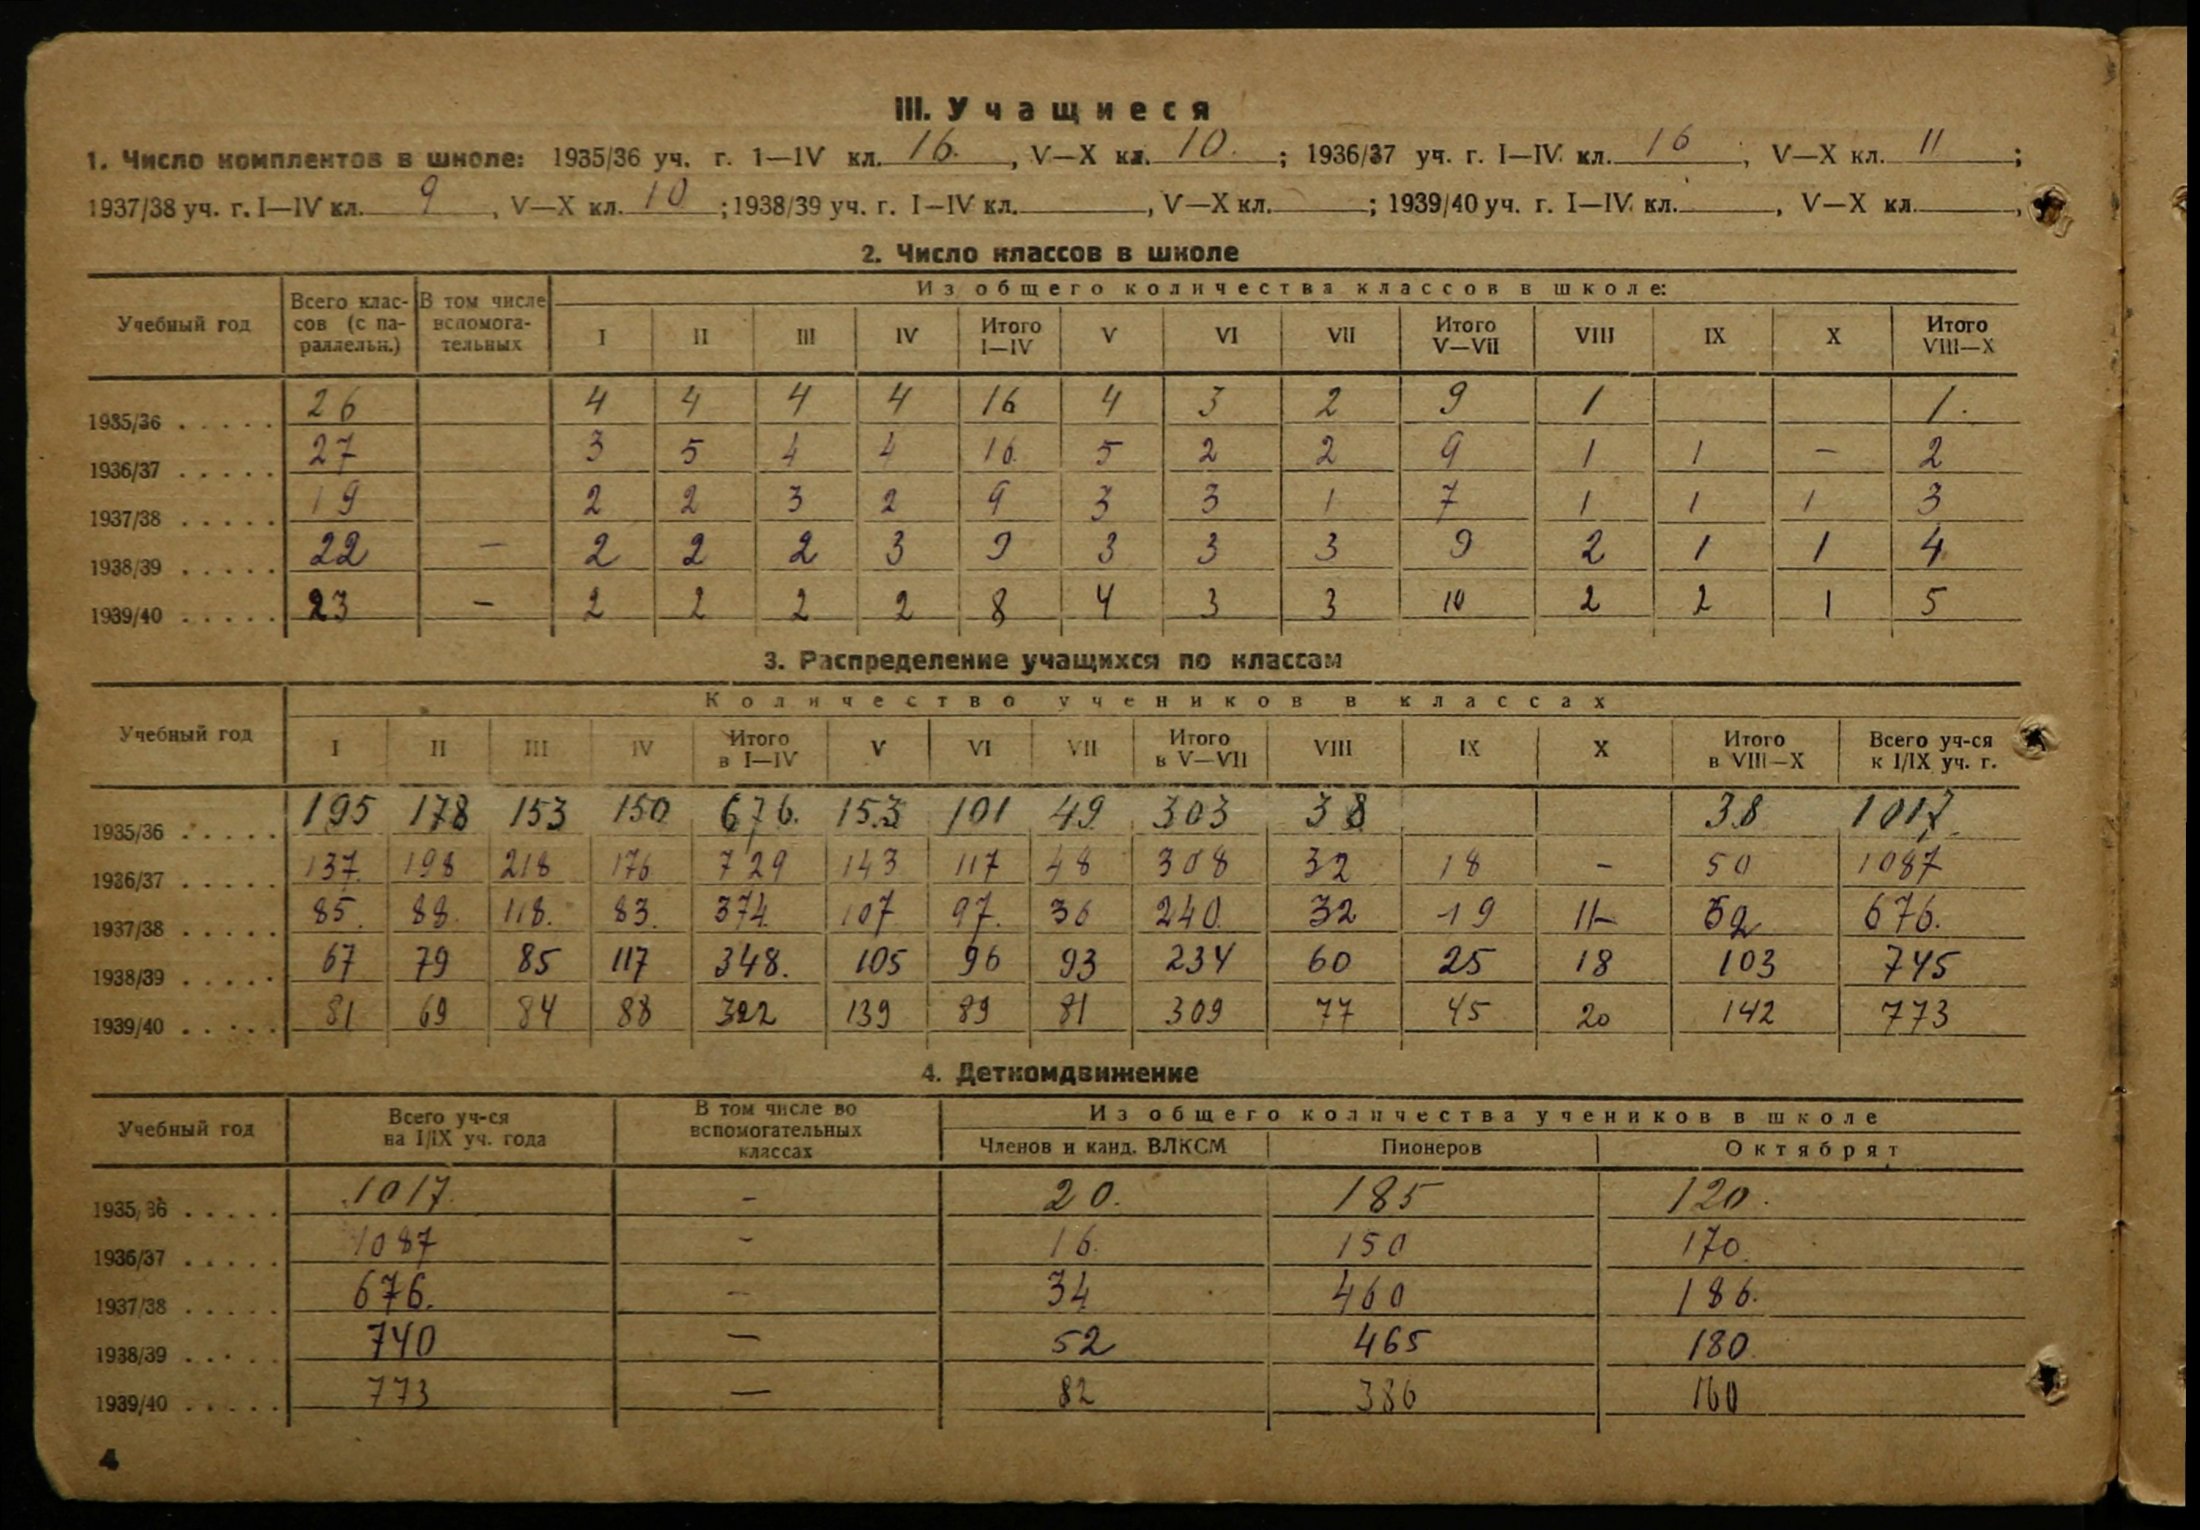 III. Учащиеся
1. Число комплектов в школе: 1935/36 уч. г. 1—IV кл. 16. , V—X кл. 10. ; 1936/37 уч. г. I—IV кл. 16 , V—X кл. 11 ;
1937/38 уч. г. I—IV кл. 9 , V—X кл. 10 ; 1938/39 уч. г. I—IV кл. , V—X кл. ; 1939/40 уч. г. I—IV кл. , V—X кл. ,
2. Число классов в школе
Учебный год Всего классов (с параллельн.) В том числе вспомогательных Из общего количества классов в школе:
I II III IV Итого I—IV V VI VII Итого V—VII VIII IX X Итого VIII—X
1935/36 ..... 26 4 4 4 4 16 4 3 2 9 1 1.
1936/37 ..... 27 3 5 4 4 16 5 2 2 9 1 1 — 2
1937/38 ..... 19 2 2 3 2 9 3 3 1 7 1 1 1 3
1938/39 ..... 22 — 2 2 2 3 9 3 3 3 9 2 1 1 4
1939/40 ..... 23 — 2 2 2 2 8 4 3 3 10 2 2 1 5
3. Распределение учащихся по классам
Учебный год Количество учеников в классах
I II III IV Итого в I—IV V VI VII Итого в V—VII VIII IX X Итого в VIII—X Всего уч-ся к I/IX уч. г.
1935/36 ..... 195 178 153 150 676. 153 101 49 303 38 38 1017.
1936/37 ..... 137. 198 218 176 729 143 117 48 308 32 18 — 50 1087
1937/38 ..... 85. 88. 118. 83. 374. 107 97. 36 240. 32 19 11 62 676.
1938/39 ..... 67 79 85 117 348. 105 96 93 234 60 25 18 103 745
1939/40 ..... 81 69 84 88 322 139 89 81 309 77 45 20 142 773
4. Деткомдвижение
Учебный год Всего уч-ся на I/IX уч. года В том числе во вспомогательных классах Из общего количества учеников в школе
Членов и канд. ВЛКСМ Пионеров Октябрят
1935/36 ..... 1017. — 20. 185 120.
1936/37 ..... 1087 — 16. 150 170.
1937/38 ..... 676. — 34 460 186.
1938/39 ..... 740 — 52 465 180.
1939/40 ..... 773 — 82 386 160
4